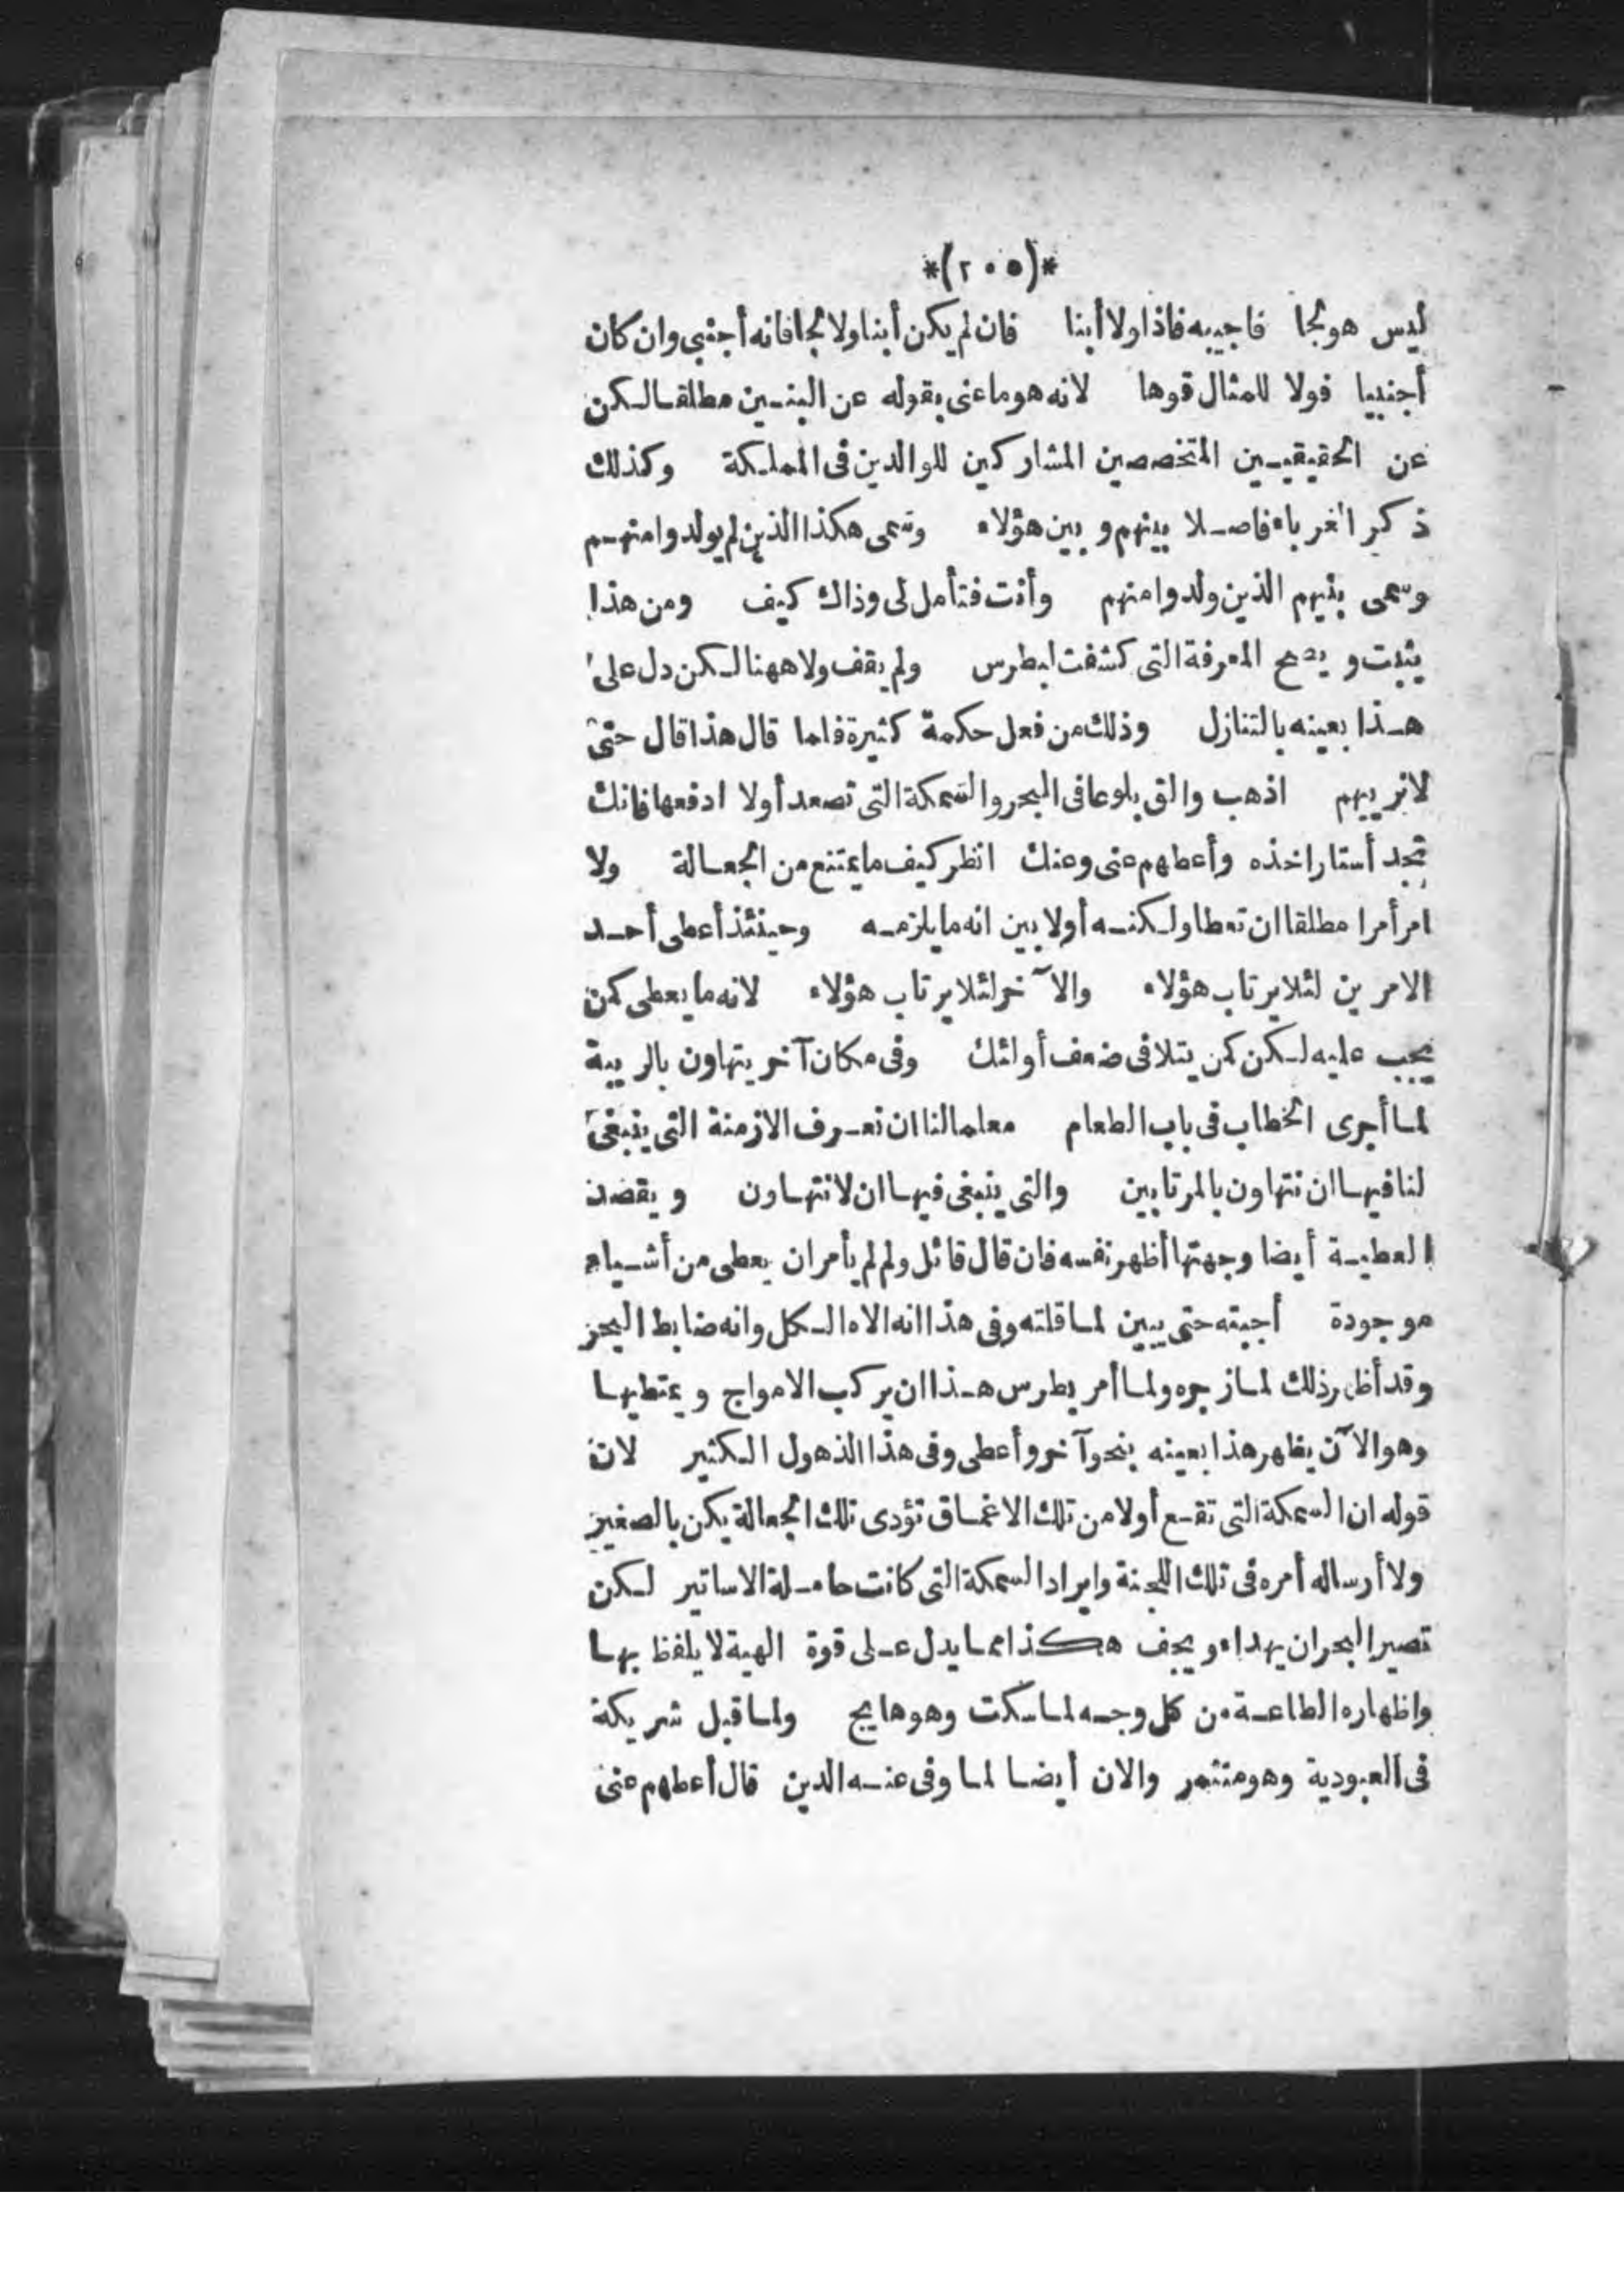 *(٢٠٥)*
ليس هو نجا فاجيبه فاذا ولا أبنا فان لم يكن أبنا ولا نجا فانه أجنبي وان كان
أجنبيا فولا للمثال قوها لانه هو ما عنى بقوله عن البنين مطلقا لكن
عن الحقيقيين المتخصصين المشاركين للوالدين فى المملكة وكذلك
ذكر الغرباء فاصلا بينهم وبين هؤلاء وسمى هكذا الذين لم يولدوا منهم
وسمى بنيهم الذين ولدوا منهم وأنت فتأمل لى وذاك كيف ومن هذا
يثبت ويصح المعرفة التى كشفت لبطرس ولم يقف ولا ههنا لكن دل على
هذا بعينه بالتنازل وذلك من فعل حكمة كثيرة فلما قال هذا قال حتى
لا نريبهم اذهب والق بلوعا فى البحر والسمكة التى تصعد أولا ادفعها فانك
تجد أستارا خذه وأعطهم عنى وعنك انظر كيف ما يمتنع من الجعالة ولا
امر أمرا مطلقا ان تعطا ولكنه أولا بين انه ما يلزمه وحينئذ أعطى أحد
الامرين لئلا يرتاب هؤلاء والآخر لئلا يرتاب هؤلاء لانه ما يعطى كمن
يجب عليه لكن كمن يتلافى ضعف أولئك وفى مكان آخر يتهاون بالريبة
لما أجرى الخطاب فى باب الطعام معلما لنا ان نعرف الازمنة التى ينبغى
لنا فيها ان نتهاون بالمرتابين والتى ينبغى فيها ان لا نتهاون ويقصد
العطية أيضا وجهتها أظهر نفسه فان قال قائل ولم لم يأمر ان يعطى من أشياء
موجودة أجبته حتى يبين لما قلته وفى هذا انه الاه الكل وانه ضابط البحر
وقد أظهر ذلك لما زجره ولما أمر بطرس هذا ان يركب الامواج ويمتطيها
وهو الآن يظهر هذا بعينه بنحو آخر وأعطى وفى هذا الذهول الكثير لان
قوله ان السمكة التى تقع أولا من تلك الاغماق تؤدى تلك الجعالة يكن بالصغير
ولا أرساله أمره فى تلك اللجنة وايراد السمكة التى كانت حاملة الاساتير لكن
تصير البحر ان يهداء ويجف هكذا مما يدل على قوة الهية لا يلفظ بها
واظهاره الطاعة من كل وجه لما سكت وهو هايج ولما قبل شريكة
فى العبودية وهو متنمر والان أيضا لما وفى عنه الدين قال أعطهم عنى